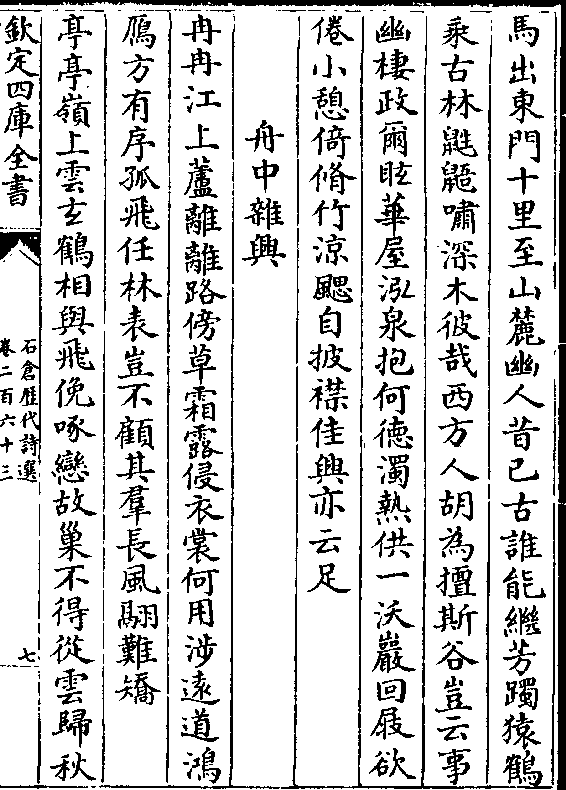 馬出東門十里至山麓幽人昔已古誰能繼芳躅猿鶴
乘古林鼪鼯嘯深木彼哉西方人胡為擅斯谷豈云事
幽棲政爾眩華屋泓泉抱何德濁熱供一沃巖回屐欲
倦小憩倚脩竹涼颸自披襟佳興亦云足
舟中雜興
冉冉江上蘆離離路傍草霜露侵衣裳何用涉遠道鴻
鴈方有序孤飛任林表豈不顧其羣長風翮難矯
亭亭嶺上雲玄鶴相與飛俛啄戀故巢不得從雲歸秋
欽定四庫全書
石倉歷代詩選
卷二百六十三
七